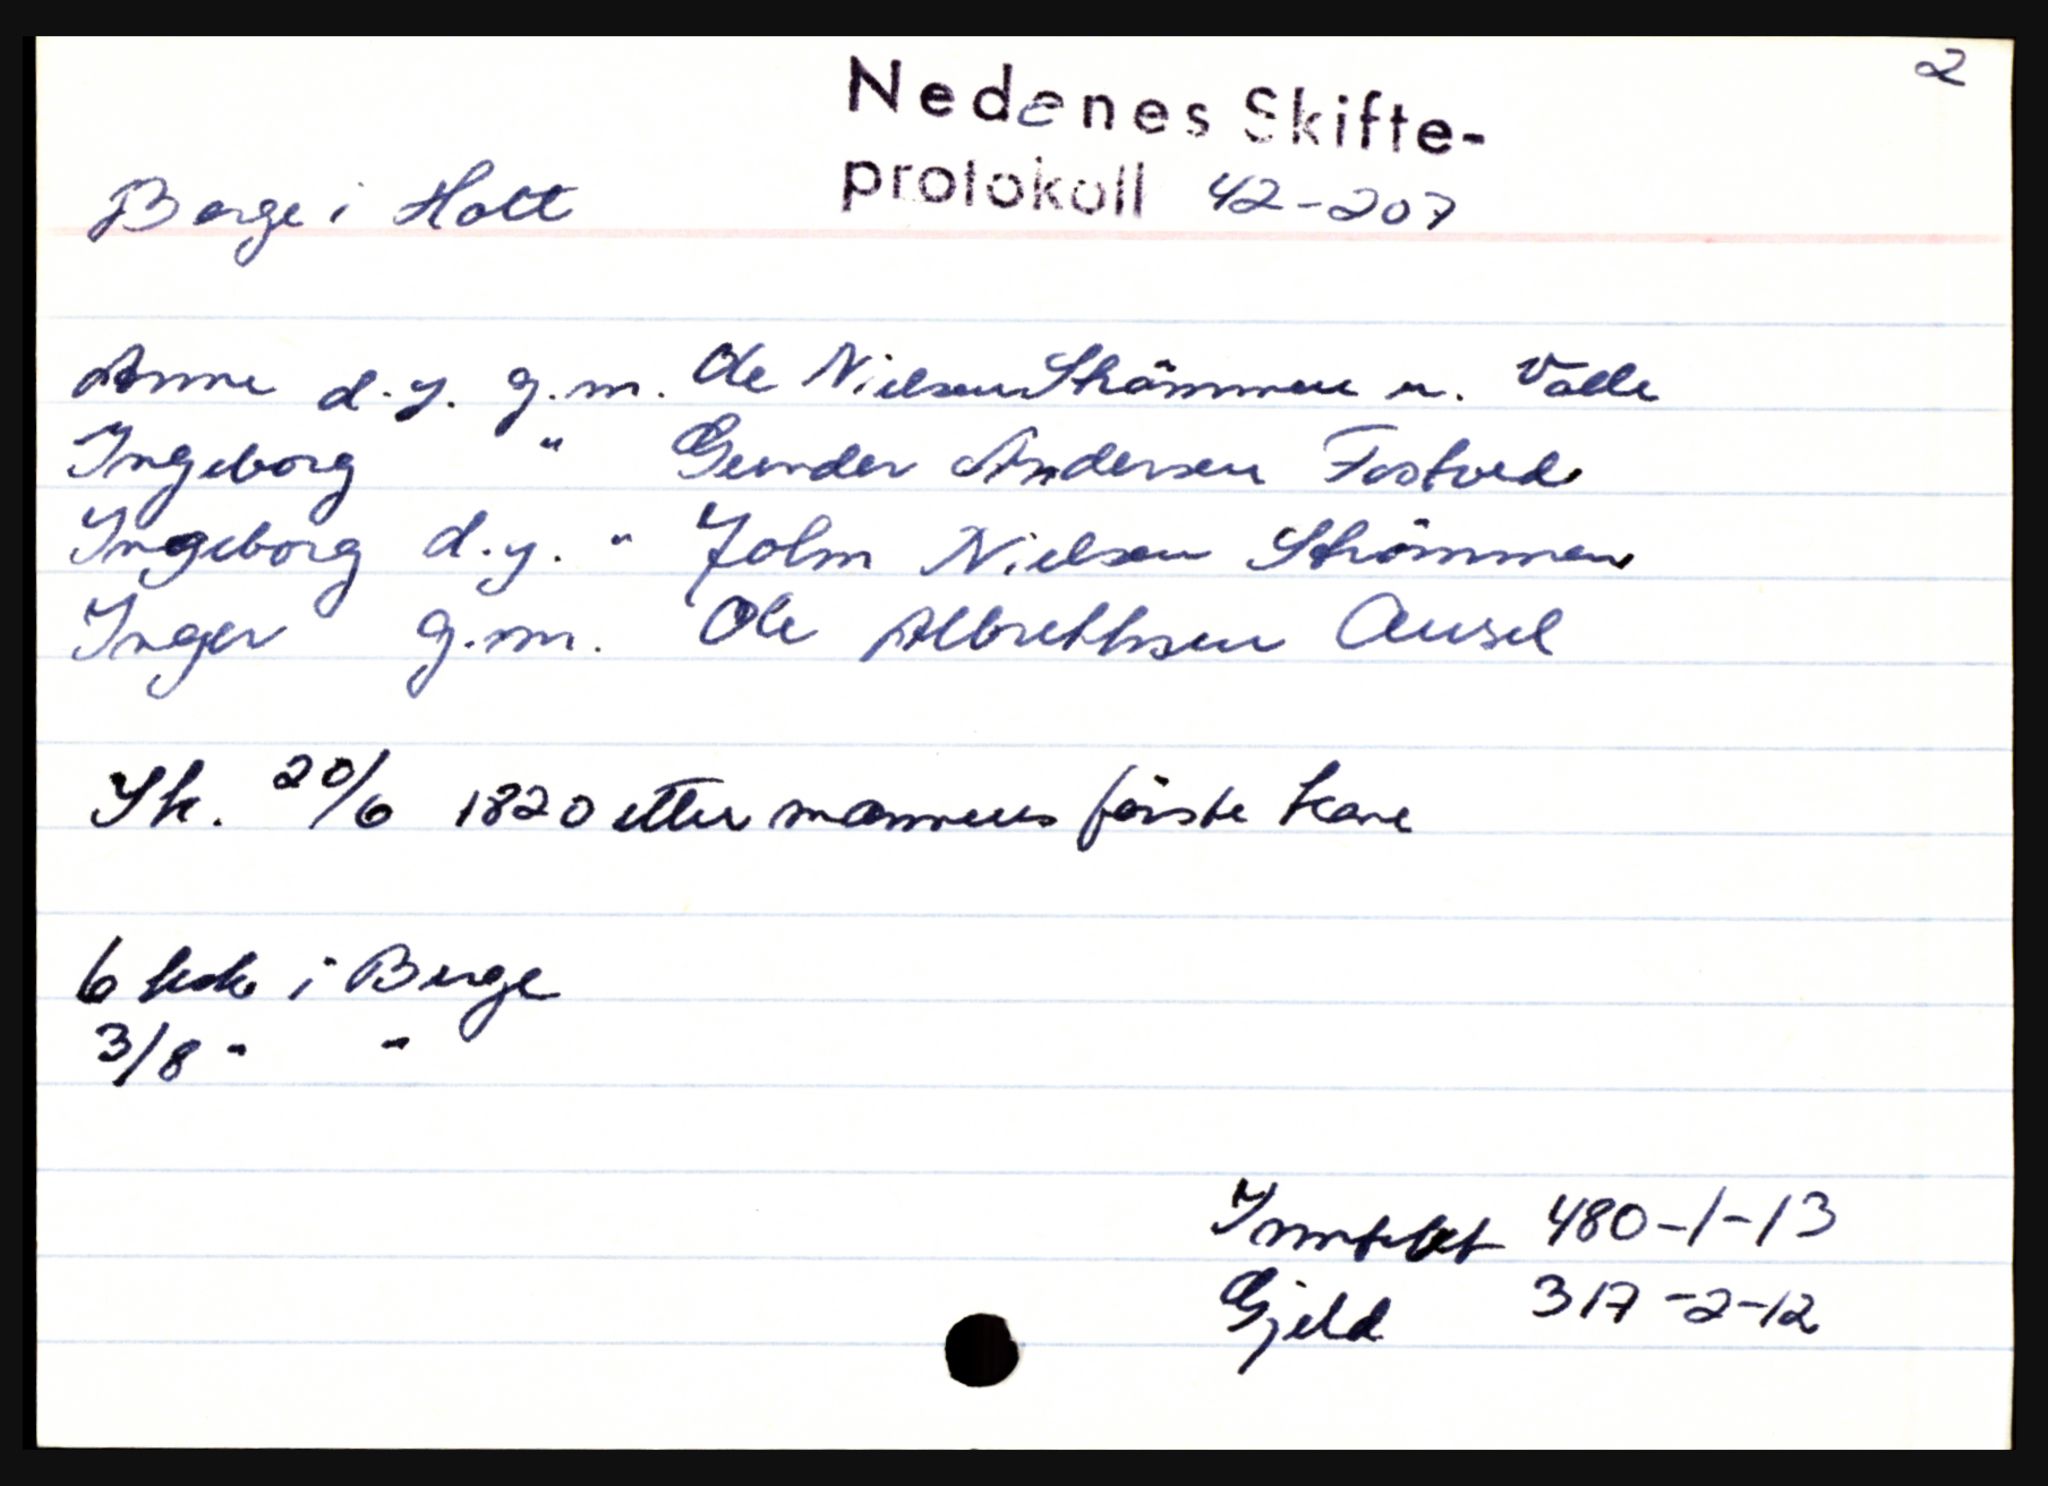 2
Nedenes Skifte-
protokoll 42-207
Berge i Holt
Anne d.y. g.m. Ole Nielsen Strömmen u. Valle
Ingeborg " Gunder Andersen Fostved
Ingeborg d.y. " John Nielsen Strömmen
Inger g.m. Ole Albrethsen Ausel
Sk. 20/6 1820 etter mannens första kone
6 ksk i Berge
3/8 " "
Inntekt 480-1-13
Gjeld 317-2-12